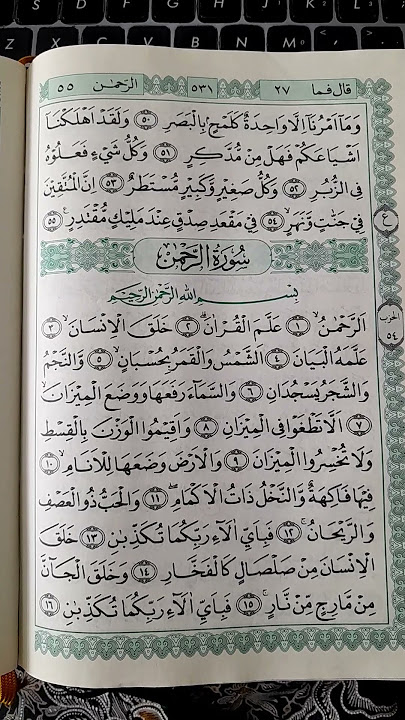 S D F G H J K L
Z X C V B N M
الرحمن ٥٥ ٥٣١ قال فما ٢٧
وَمَآ اَمْرُنَآ اِلَّا وَاحِدَةٌ كَلَمْحٍۢ بِالْبَصَرِ ٥٠ وَلَقَدْ اَهْلَكْنَآ
اَشْيَاعَكُمْ فَهَلْ مِنْ مُّدَّكِرٍ ٥١ وَكُلُّ شَيْءٍ فَعَلُوْهُ
فِى الزُّبُرِ ٥٢ وَكُلُّ صَغِيْرٍ وَّكَبِيْرٍ مُّسْتَطَرٌ ٥٣ اِنَّ الْمُتَّقِيْنَ
فِيْ جَنّٰتٍ وَّنَهَرٍۙ ٥٤ فِيْ مَقْعَدِ صِدْقٍ عِنْدَ مَلِيْكٍ مُّقْتَدِرٍ ࣖ ٥٥
ع
سُوْرَةُ الرَّحْمٰنِ
بِسْمِ اللّٰهِ الرَّحْمٰنِ الرَّحِيْمِ
اَلرَّحْمٰنُۙ ١ عَلَّمَ الْقُرْاٰنَۗ ٢ خَلَقَ الْاِنْسَانَۙ ٣
الحزب
٥٤
عَلَّمَهُ الْبَيَانَ ٤ اَلشَّمْسُ وَالْقَمَرُ بِحُسْبَانٍۙ ٥ وَّالنَّجْمُ
وَالشَّجَرُ يَسْجُدَانِ ٦ وَالسَّمَاۤءَ رَفَعَهَا وَوَضَعَ الْمِيْزَانَۙ
٧ اَلَّا تَطْغَوْا فِى الْمِيْزَانِ ٨ وَاَقِيْمُوا الْوَزْنَ بِالْقِسْطِ
وَلَا تُخْسِرُوا الْمِيْزَانَ ٩ وَالْاَرْضَ وَضَعَهَا لِلْاَنَامِۙ ١٠
فِيْهَا فَاكِهَةٌ وَّالنَّخْلُ ذَاتُ الْاَكْمَامِۖ ١١ وَالْحَبُّ ذُو الْعَصْفِ
وَالرَّيْحَانُۚ ١٢ فَبِاَيِّ اٰلَاۤءِ رَبِّكُمَا تُكَذِّبٰنِ ١٣ خَلَقَ
الْاِنْسَانَ مِنْ صَلْصَالٍ كَالْفَخَّارِ ١٤ وَخَلَقَ الْجَاۤنَّ
مِنْ مَّارِجٍ مِّنْ نَّارٍۚ ١٥ فَبِاَيِّ اٰلَاۤءِ رَبِّكُمَا تُكَذِّبٰنِ ١٦